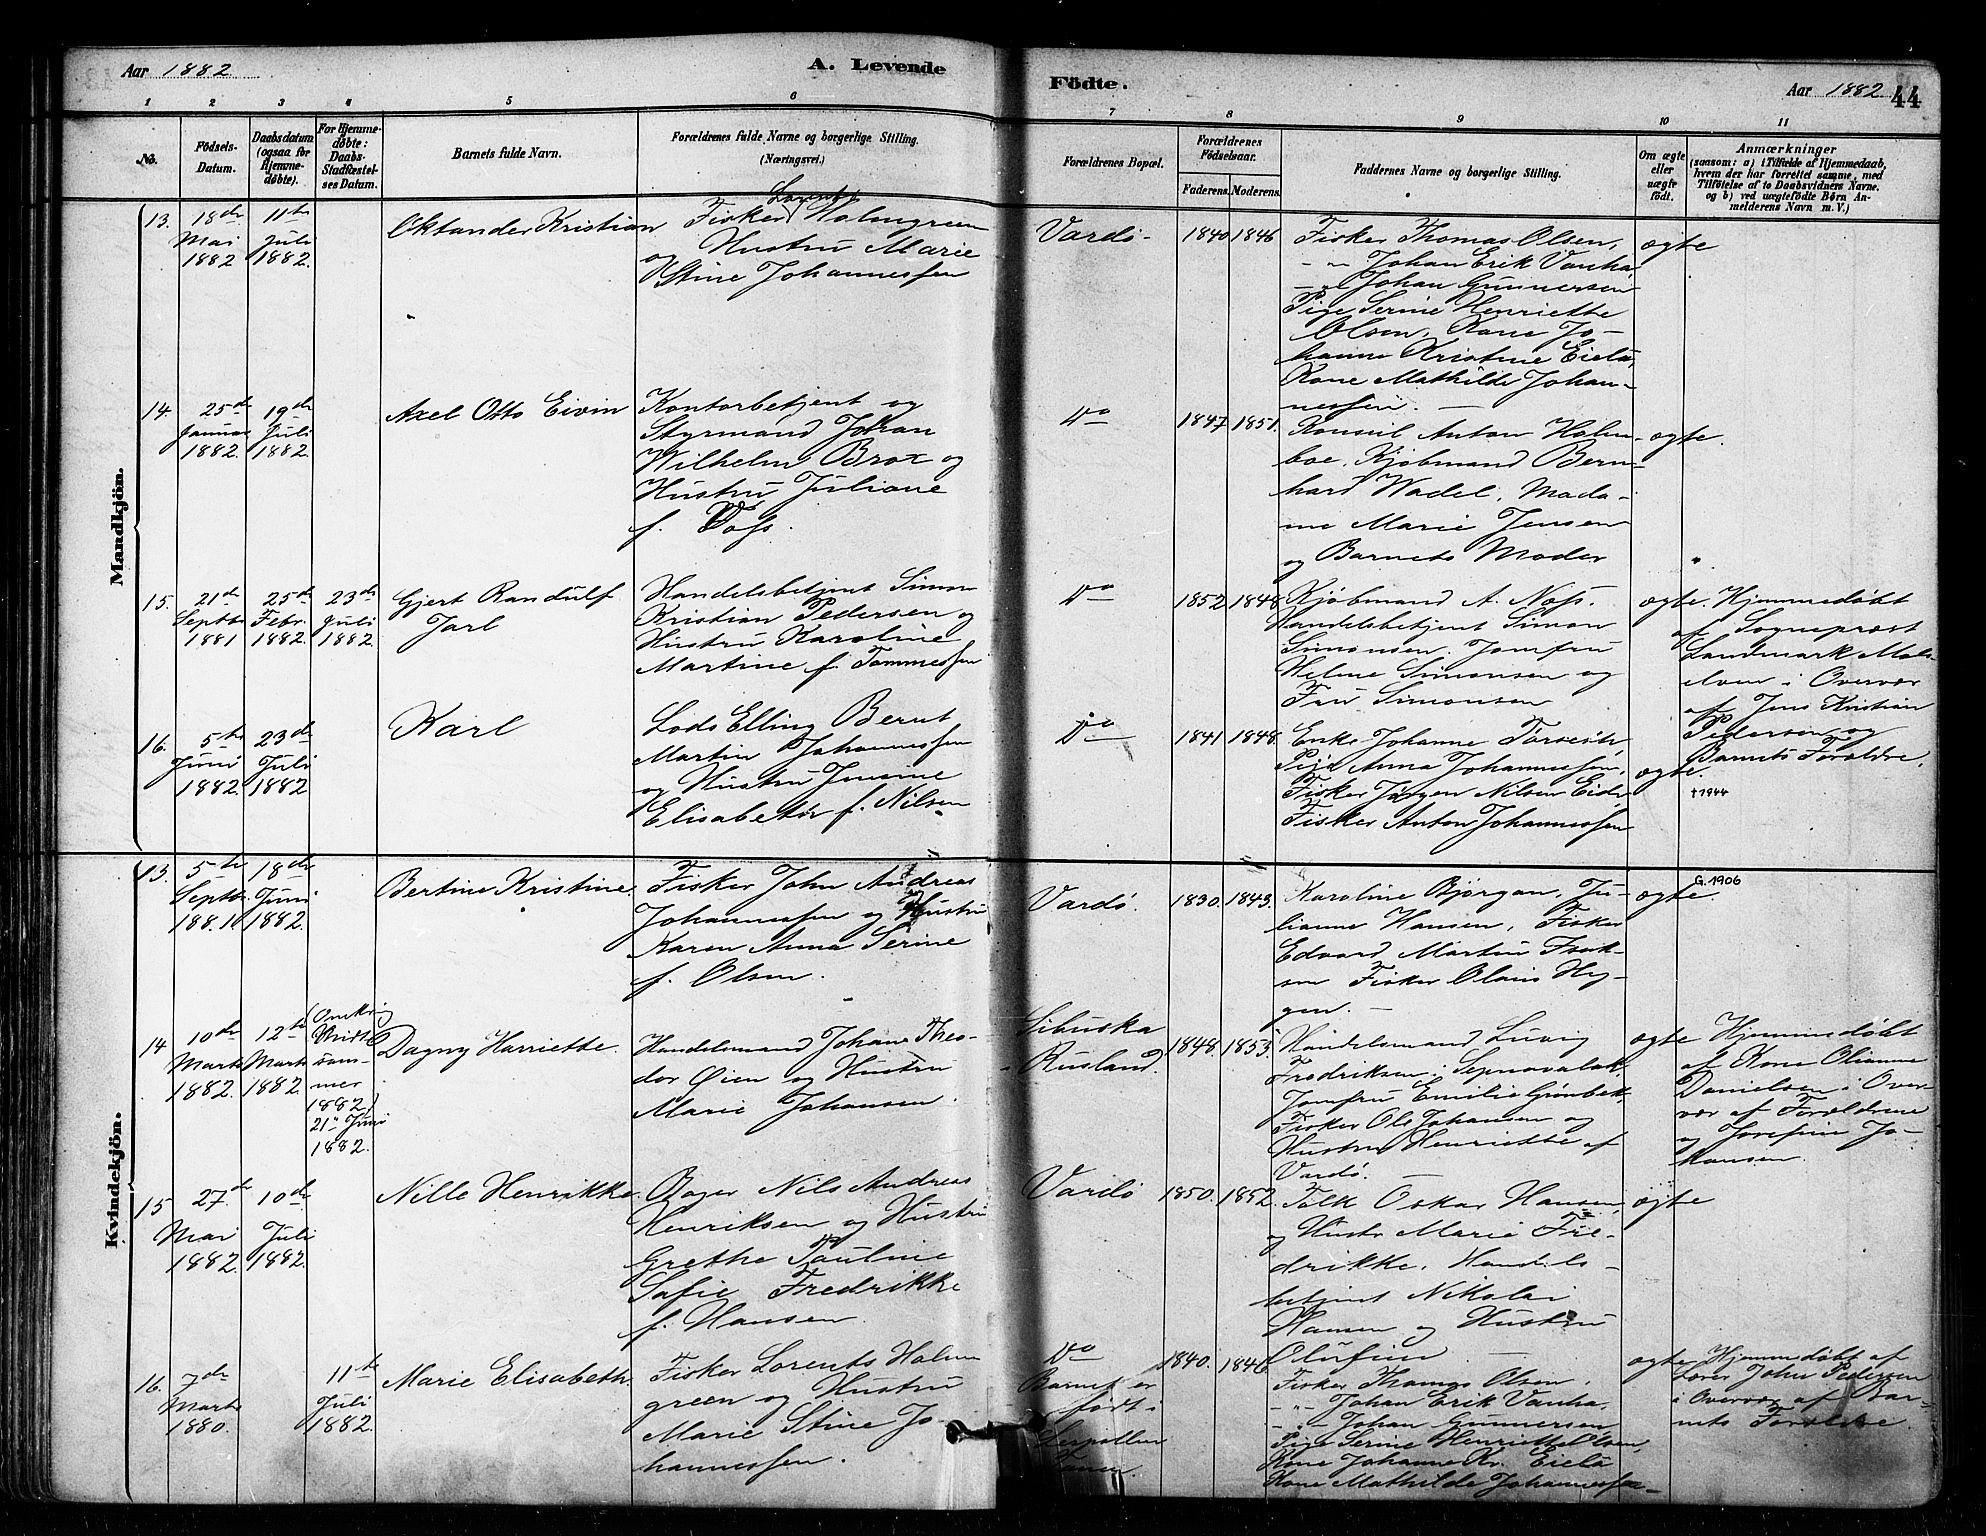 Aar 1882
A. Levende
Födte.
Aar 1882
44
1 2 3 4 5 6 7 8 9 10 11
No.
Födsels-
Datum.
Daabsdatum
(ogsaa for
Hjemme-
døbte).
For Hjemme-
døbte:
Daabs-
Stadfæstel-
ses Datum.
Barnets fulde Navn.
Forældrenes fulde Navne og borgerlige Stilling.
(Næringsvei.)
Forældrenes Bopæl.
Forældrenes
Födselsaar.
Faderens. Moderens.
Faddernes Navne og borgerlige Stilling.
Om ægte
eller
uægte
født.
Anmærkninger
(saasom: a) i Tilfælde af Hjemmedaab,
hvem der har forrettet samme, med
Tilföielse af to Daabsvidners Navne.
og b) ved uægtefödte Børn An-
melderens Navn m. V.)
Mandkjön.
13.
18de
Mai
1882
11te
Juli
1882.
Oktander Kristian
Lorents
Fisker Holmgreen
og Hustru Marie
Stine Johannessen
Vardø-
1840 1846
Fisker Thomas Olsen,
-"- Johan Erik Vanha,
-"- Johan Gunnersen
Pige Serine Henriette
Olsen, Kone Jo-
hanne Kristine Eielä,
Kone Mathilde Johan-
nessen. —
ægte
14.
25de
Januar
1882.
19de
Juli
1882.
Axel Otto Eivin
Kontorbetjent og
Styrmand Johan
Wilhelm Brox og
Hustru Juliane
f. Voss.
Do
1847 1851.
Konsul Anton Holm-
boe, Kjøbmand Bern-
hard Wadel, Mada-
me Marie Jensen
og Barnets Moder
ægte.
15.
21de
Septbr
1881
25de
Febr.
1882.
23de
Juli
1882.
Gjert Randulf
Jarl
Handelsbetjent Simon
Kristian Pedersen og
Hustru Karoline
Martine f. Tommessen
Do
1852 1848.
Kjøbmand A. Noss.
Handelsbetjent Simon
Simonsen. Jomfru
Helene Simonsen og
Fru Simonsen
ægte.
Hjemmedøbt
af Sogneprest
Landmark Mals-
elven i Overvær
af Jens Kristian
Pedersen og
Barnets Forældre.
16.
5te
Juni
1882.
23de
Juli
1882
Karl
Lods Elling Bernt
Martin Johannessen
og Hustru Jensine
Elisabeth f. Nilsen
Do
1841 1848.
Enke Johanne
Pige Anna Johannessen,
Fisker Jørgen Nilsen Eide
Fisker Anton Johannessen
ægte.
†1944
Kvindekjön.
13.
5te
Septbr
1881.
18de
Juni
1882.
Bertine Kristine.
Fisker John Andreas
Johannessen og Hustru
Karen Anna Serine
f. Olsen.
Vardø.
1830. 1843.
Karoline Bjørgan, Ju-
lianne Hansen, Fisker
Edvard Martin Frek-
sen Fisker Olais Hy-
gen. —
ægte.
G.1906
14
10de
Marts
1882.
12te
Marts
1882.
(Omkring
Midt
som-
mer
1882)
21" Juni
1882.
Dagny Harriette.
Handelsmand Johan Theo-
dor Øien og Hustru
Marie Johansen.
Sibuska
Rusland.
1848. 1853.
Handelsmand Luvig
Fredriksen i Sepnavalok,
Jomfru Emilie Grønbek,
Fisker Ole Johansen og
Hustru Henriette af
Vardø. —
ægte
Hjemmedøbt
af Kone Olianna
Danielsen i Over-
vær af Forældrene
og Josefine Jo-
hansen.
15
27de
Mai
1882.
10de
Juli
1882.
Nille Henrikke.
Bager Nils Andreas
Henriksen og Hustru
Grethe Pauline
Sofie Fredrikke
f. Hansen.
Vardø
1850. 1852.
Tolk Oskar Hansen,
og Hustr. Marie Fre-
drikke. Handels-
betjent Nikolai
Hansen og Hustru
Olufine —
ægte
16.
7de
Marts
1880.
11te
Juli
1882.
Marie Elisabeth.
Fisker Lorents Holm
green og Hustru
Marie Stine Jo-
hannessen.
Do
Barnet er
født i
Lerpollen
Tanen.
1840. 1846
Fisker Thomas Olsen,
-"- Johan Erik Vanha,
-"- Johan Gunnersen,
Pige Serine Henriette Olsen,
Kone Johanne Kr. Eielä
Kone Mathilde Johannessen
ægte
Hjemmedøbt af
Lærer John Pedersen
i Overvær af Bar-
nets Forældre.